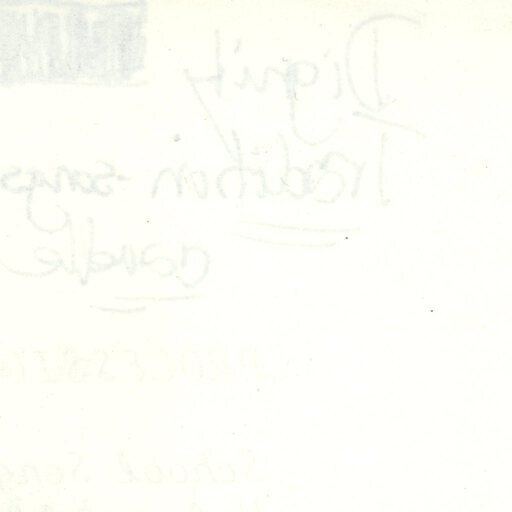 Dignity
Tradition - songs
candle
PROCESSI
School Song